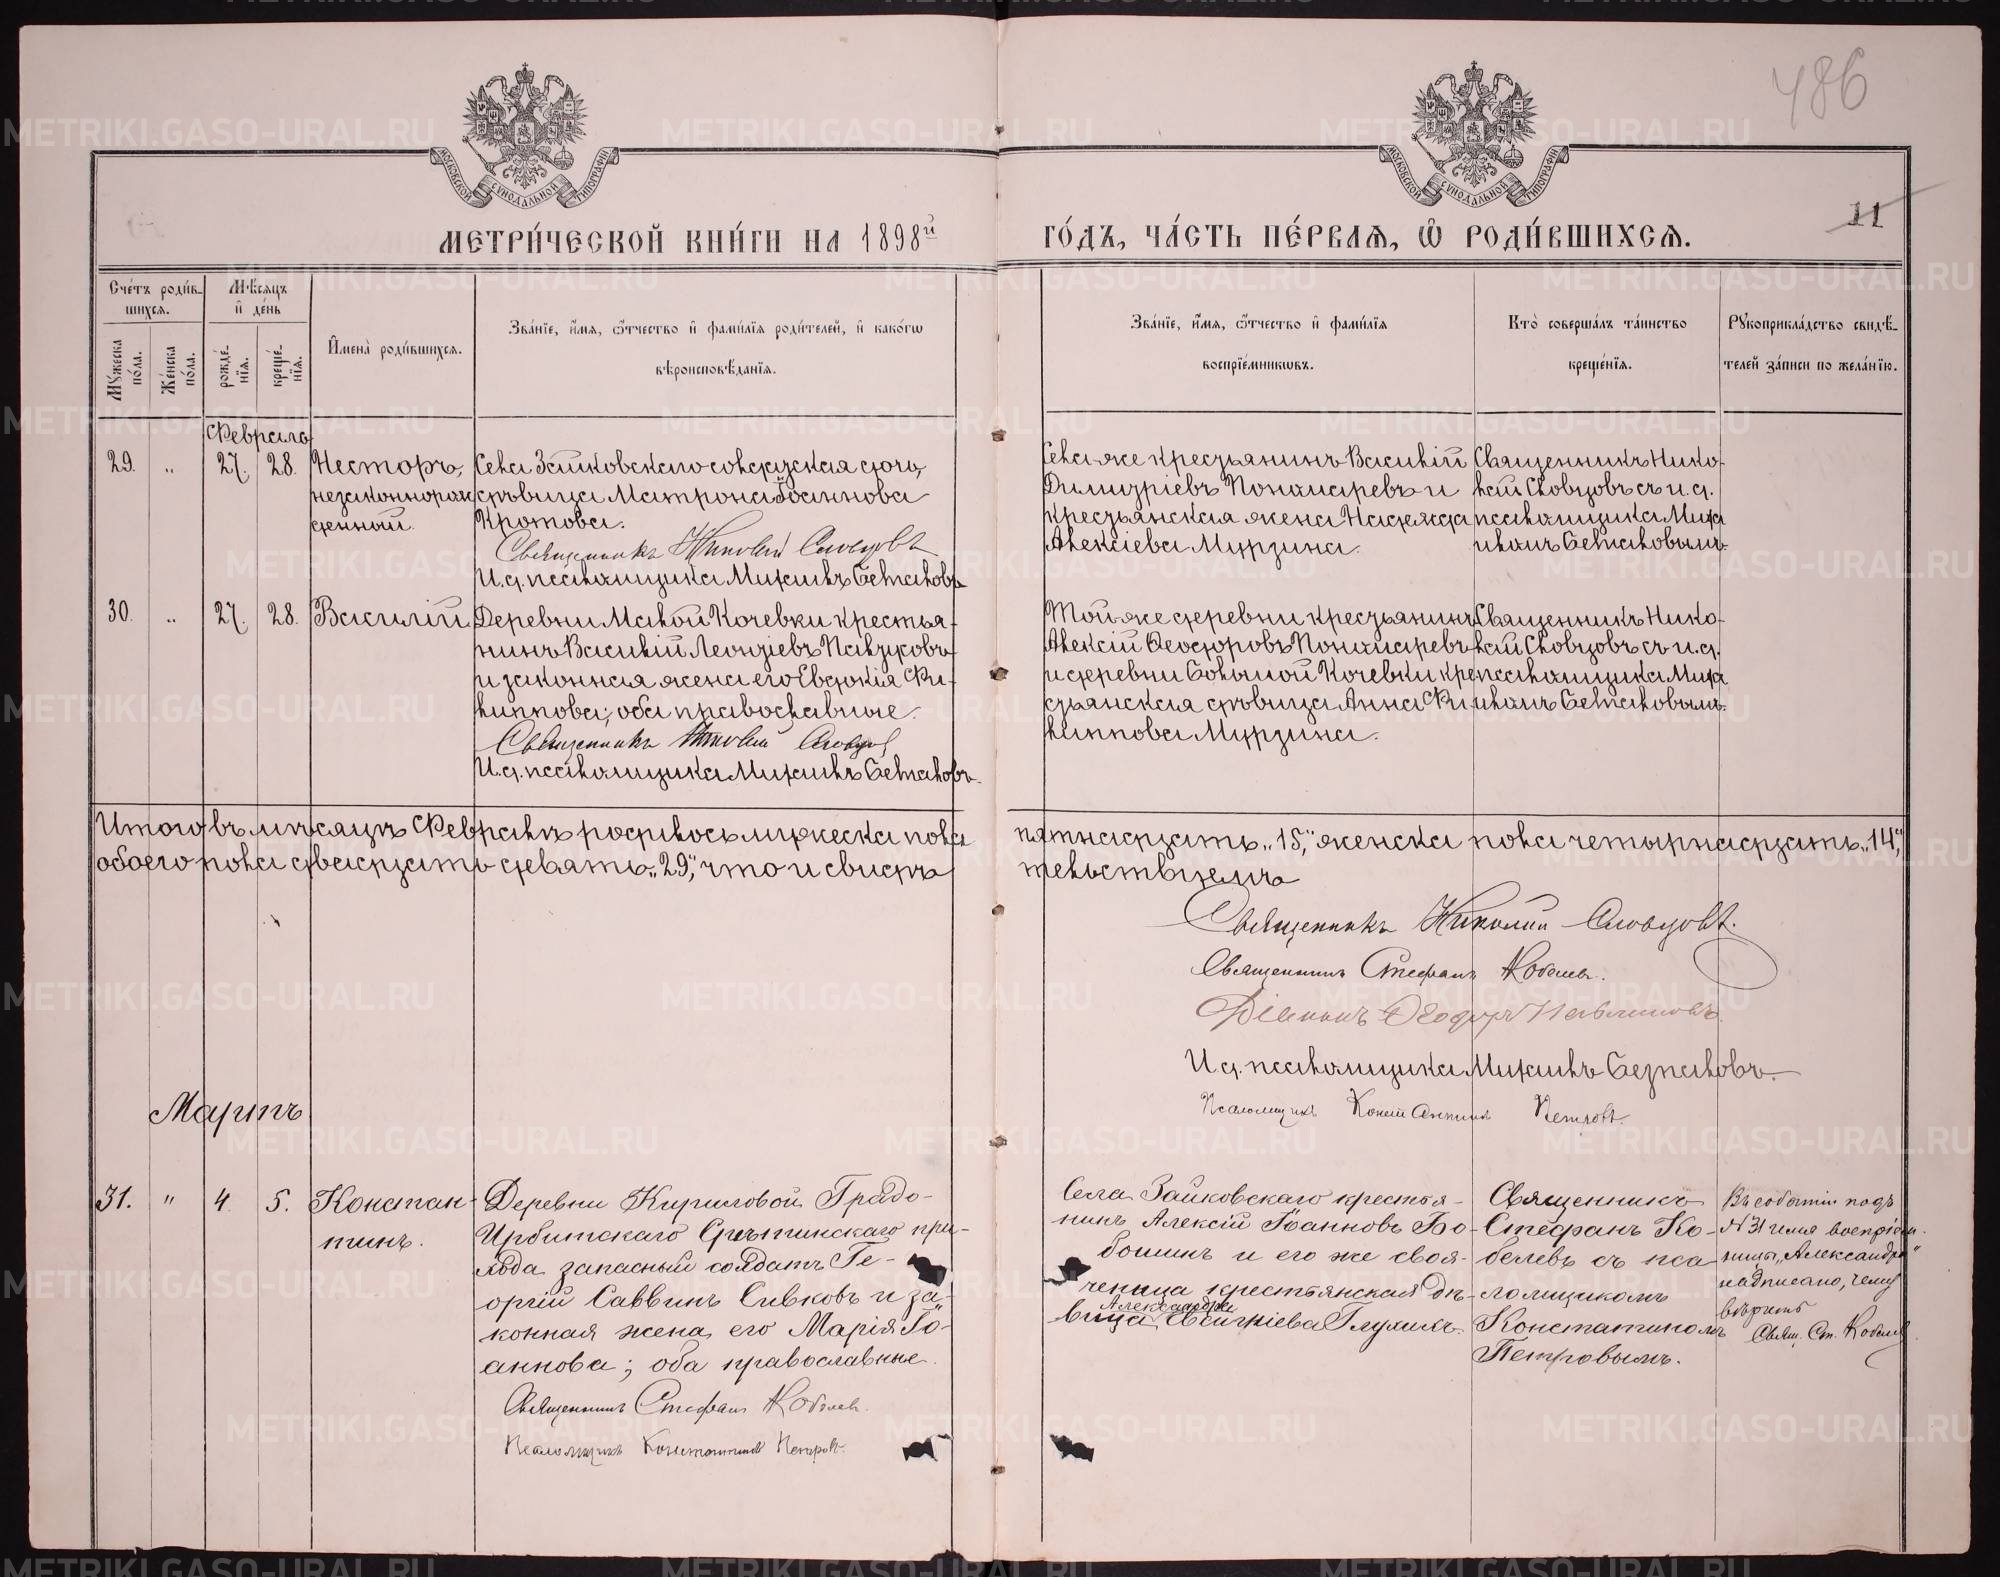 486
МОСКОВСКОЙ СѴНОДАЛЬНОЙ ТИПОГРАФІИ
МОСКОВСКОЙ СѴНОДАЛЬНОЙ ТИПОГРАФІИ
11
МЕТРИ́ЧЕСКОЙ КНИ́ГИ НА 1898й
ГО́ДЪ, ЧА́СТЬ ПЕ́РВАѦ, Ѿ РОДИ́ВШИХСѦ.
Сче́тъ роди́в-
шихся.
Мѣ́сяцъ
и҆ де́нь
Мꙋ́жеска по́ла.
Же́нска по́ла.
рожде́нїя.
креще́нїя.
И҆мена̀ роди́вшихся.
Зва́нїе, и҆́мя, ѻ҆́тчество и҆ фами́лїя роди́телей, и҆ како́гѡ
вѣроисповѣ́данїя.
Зва́нїе, и҆́мя, ѻ҆́тчество и҆ фами́лїя
воспрїе́мникѡвъ.
Кто̀ соверша́лъ та́инство
креще́нїя.
Рꙋкоприкла́дство свидѣ́-
телей за́писи по жела́нїю.
Февраля
29. „ 27. 28. Несторъ,
незаконнорож
денной.
Села Зайковскаго солдатская дочь,
дѣвица Матрона Іоаннова
Кротова.
Священникъ Николай Словцовъ
И.д. псаломщика Михаилъ
Села же крестьянинъ Василій
Димитріевъ Пономаревъ и
крестьянская жена Надежда
Алексіева Мурзина.
Священникъ Нико-
лай Словцовъ съ и.д.
псаломщика Миха
иломъ
30. „ 27. 28. Василій
Деревни Малой Кочевки крестья-
нинъ Василій Леонтіевъ
и законная жена его Евдокія Фи-
липпова; оба православные.
Священникъ Николай Словцовъ
И.д. псаломщика Михаилъ
Той же деревни крестьянинъ
Алексій Ѳеодоровъ Пономаревъ
и деревни Большой Кочевки кре
стьянская дѣвица Анна Фи
липпова Мурзина.
Священникъ Нико-
лай Словцовъ съ и.д.
псаломщика Миха
иломъ
Итого въ мѣсяцѣ Февралѣ родилось мужеска пола
пятнадцать „15,“ женска пола четырнадцать „14,“
обоего пола двадцать девять „29,“ что и свидѣ
тельствуемъ
Священникъ Николай Словцовъ.
Священникъ Стефанъ Кобелевъ.
Діаконъ Ѳеодоръ
И.д. псаломщика Михаилъ
Псаломщикъ Константинъ Петровъ.
Мартъ
31. „ 4 5. Констан-
тинъ.
Деревни Кириловой Градо-
Ирбитскаго Срѣтинскаго при-
хода запасный солдатъ Ге-
оргій Саввинъ Сивковъ и за-
конная жена его Марія Іо-
аннова; оба православные.
Священникъ Стефанъ Кобелев.
Псаломщикъ Константинъ Петровъ.
Села Зайковскаго крестья-
нинъ Алексій Іоанновъ Бо-
бошинъ и его же своя-
ченица крестьянская дѣ-
Александра
вица Глухихъ.
Священникъ
Стефанъ Ко-
белевъ съ пса
ломщикомъ
Константиномъ
Петровымъ.
Въ событіи подъ
№ 31 имя воспріем-
ницы „Александра“
надписано, чему
вѣрить
Свящ. Ст. Кобелев
METRIKI.GASO-URAL.RU